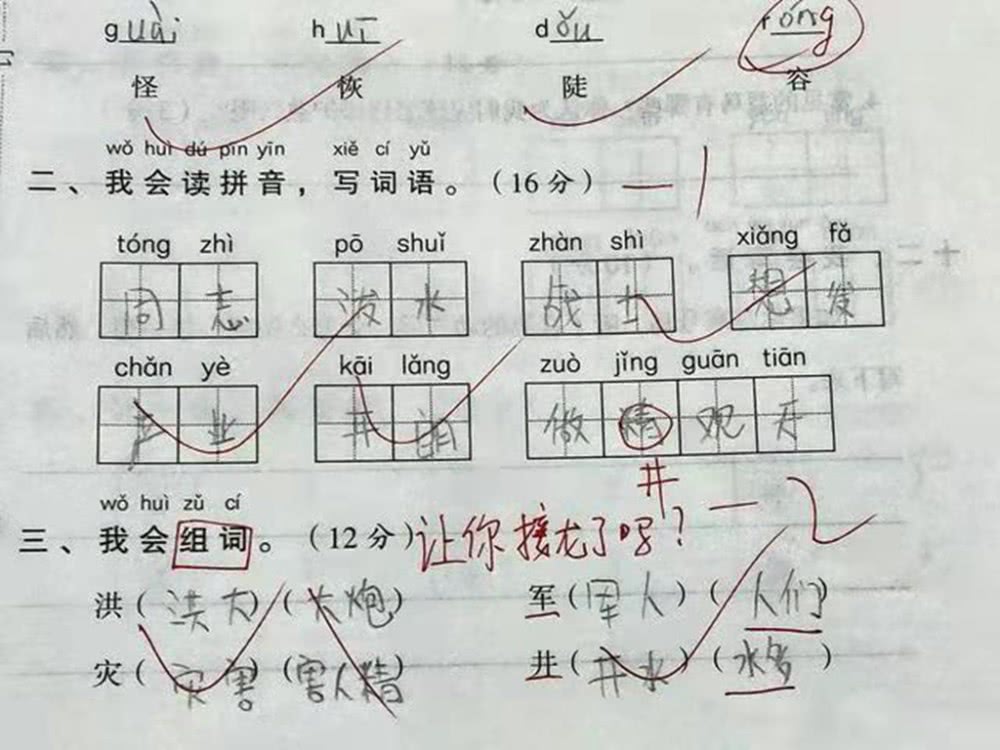 guài huī dǒu róng
怪 恢 陡 容
wǒ huì dú pīn yīn xiě cí yǔ
二、我会读拼音，写词语。（16分） 一1
tóng zhì pō shuǐ zhàn shì xiǎng fǎ
同志 泼水 战士 想发
chǎn yè kāi lǎng zuò jǐng guān tiān
产业 开朗 做精观天
井
wǒ huì zǔ cí
三、我会组词。（12分）让你接龙了吗？ 一2
洪（洪大）（大炮） 军（军人）（人们）
灾（灾害）（害人精） 井（井水）（水多）